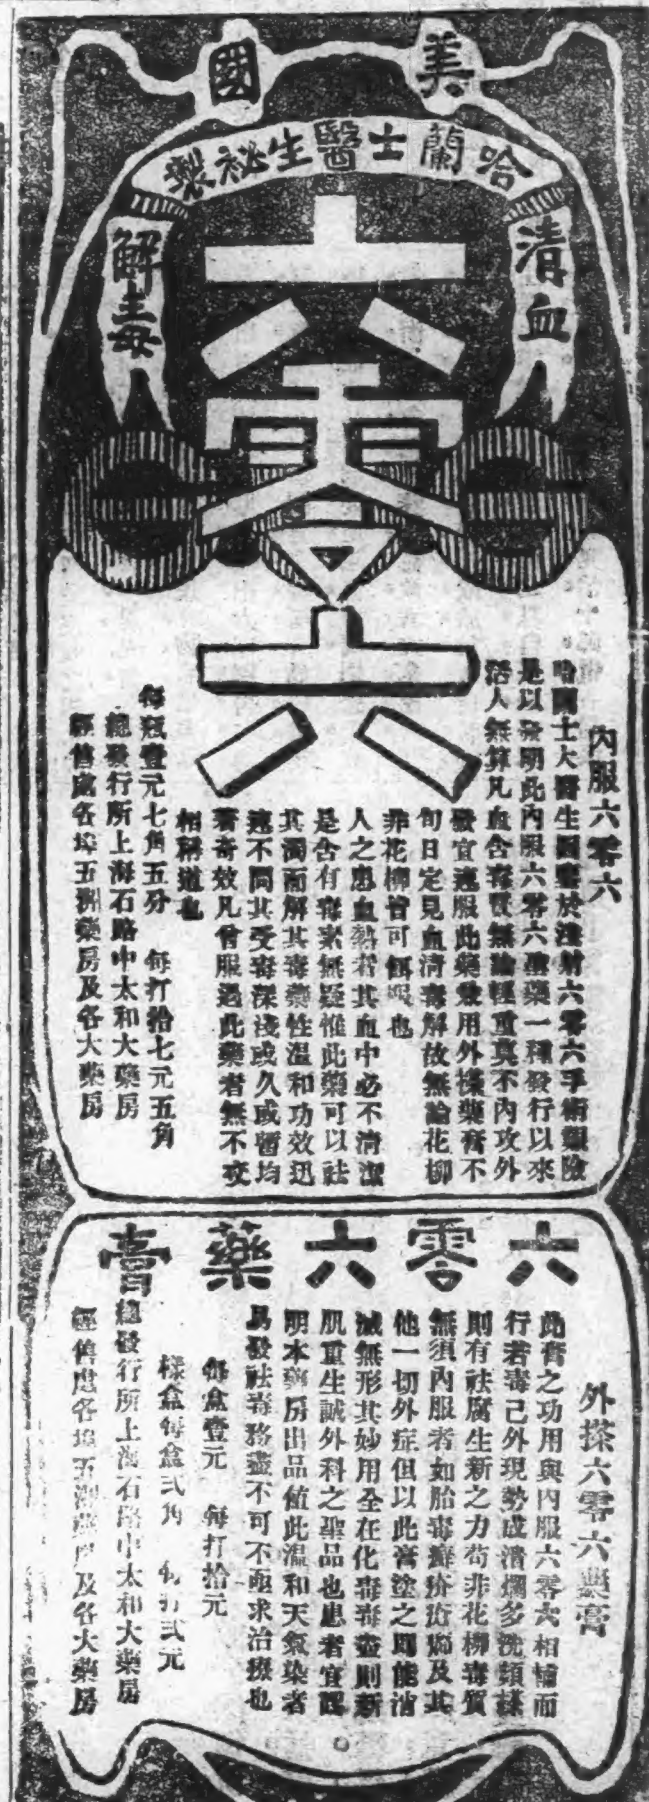 美國
哈蘭士醫生祕製
清血
解毒
六零六
內服六零六
哈蘭士大醫生因鑒於注射六零六手術頗險
是以發明此內服六零六聖藥一種發行以來
活人無算凡血含毒質無論輕重莫不內攻外
發宜速服此藥兼用外搽藥膏不
旬日定見血清毒解故無論花柳
非花柳皆可餌服也
人之患血熱者其血中必不清潔
是含有毒素無疑惟此藥可以祛
其濁而解其毒藥性溫和功效迅
速不問其受毒深淺或久或暫均
著奇效凡曾服過此藥者無不交
相稱道也
每瓶壹元七角五分 每打拾七元五角
總發行所上海石路中太和大藥房
經售處各埠五洲藥房及各大藥房
六零六藥膏
外搽六零六藥膏
此膏之功用與內服六零六相輔而
行若毒已外現勢成潰爛多洗頻搽
則有祛腐生新之力苟非花柳毒質
無須內服者如胎毒癬疥 及其
他一切外症但以此膏塗之即能消
滅無形其妙用全在化毒毒盡則新
肌重生誠外科之聖品也患者宜認
明本藥房出品值此溫和天氣染者
易發祛毒務盡不可不亟求治療也
每盒壹元 每打拾元
樣盒每盒弍角 每打弍元
總發行所上海石路中太和大藥房
經售處各埠五洲藥房及各大藥房